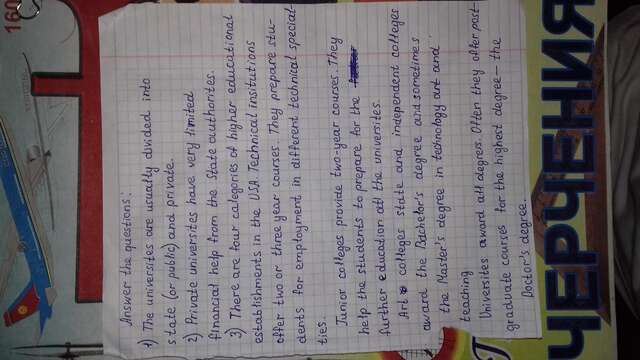 160
Answer the questions:
1) The universites are usually divided into
state (or public) and private.
2) Private universites have very limited
financial help from the State authorites.
3) There are four categories of higher educational
establishments in the USA. Technical insitutions
offer two or three year courses. They prepare stu-
dents for employment in different technical special-
ties.
Junior colleges provide two-year courses. They
help the students to prepare for the
further education at the universites.
Art colleges state and independent colleges
award the Bachelor's degree and sometimes
the Master's degree in technology art and
teaching
Universites award all degrees. Often they offer post-
graduate courses for the highest degree – the
Doctor's degree.
ЧЕРЧЕНИЯ